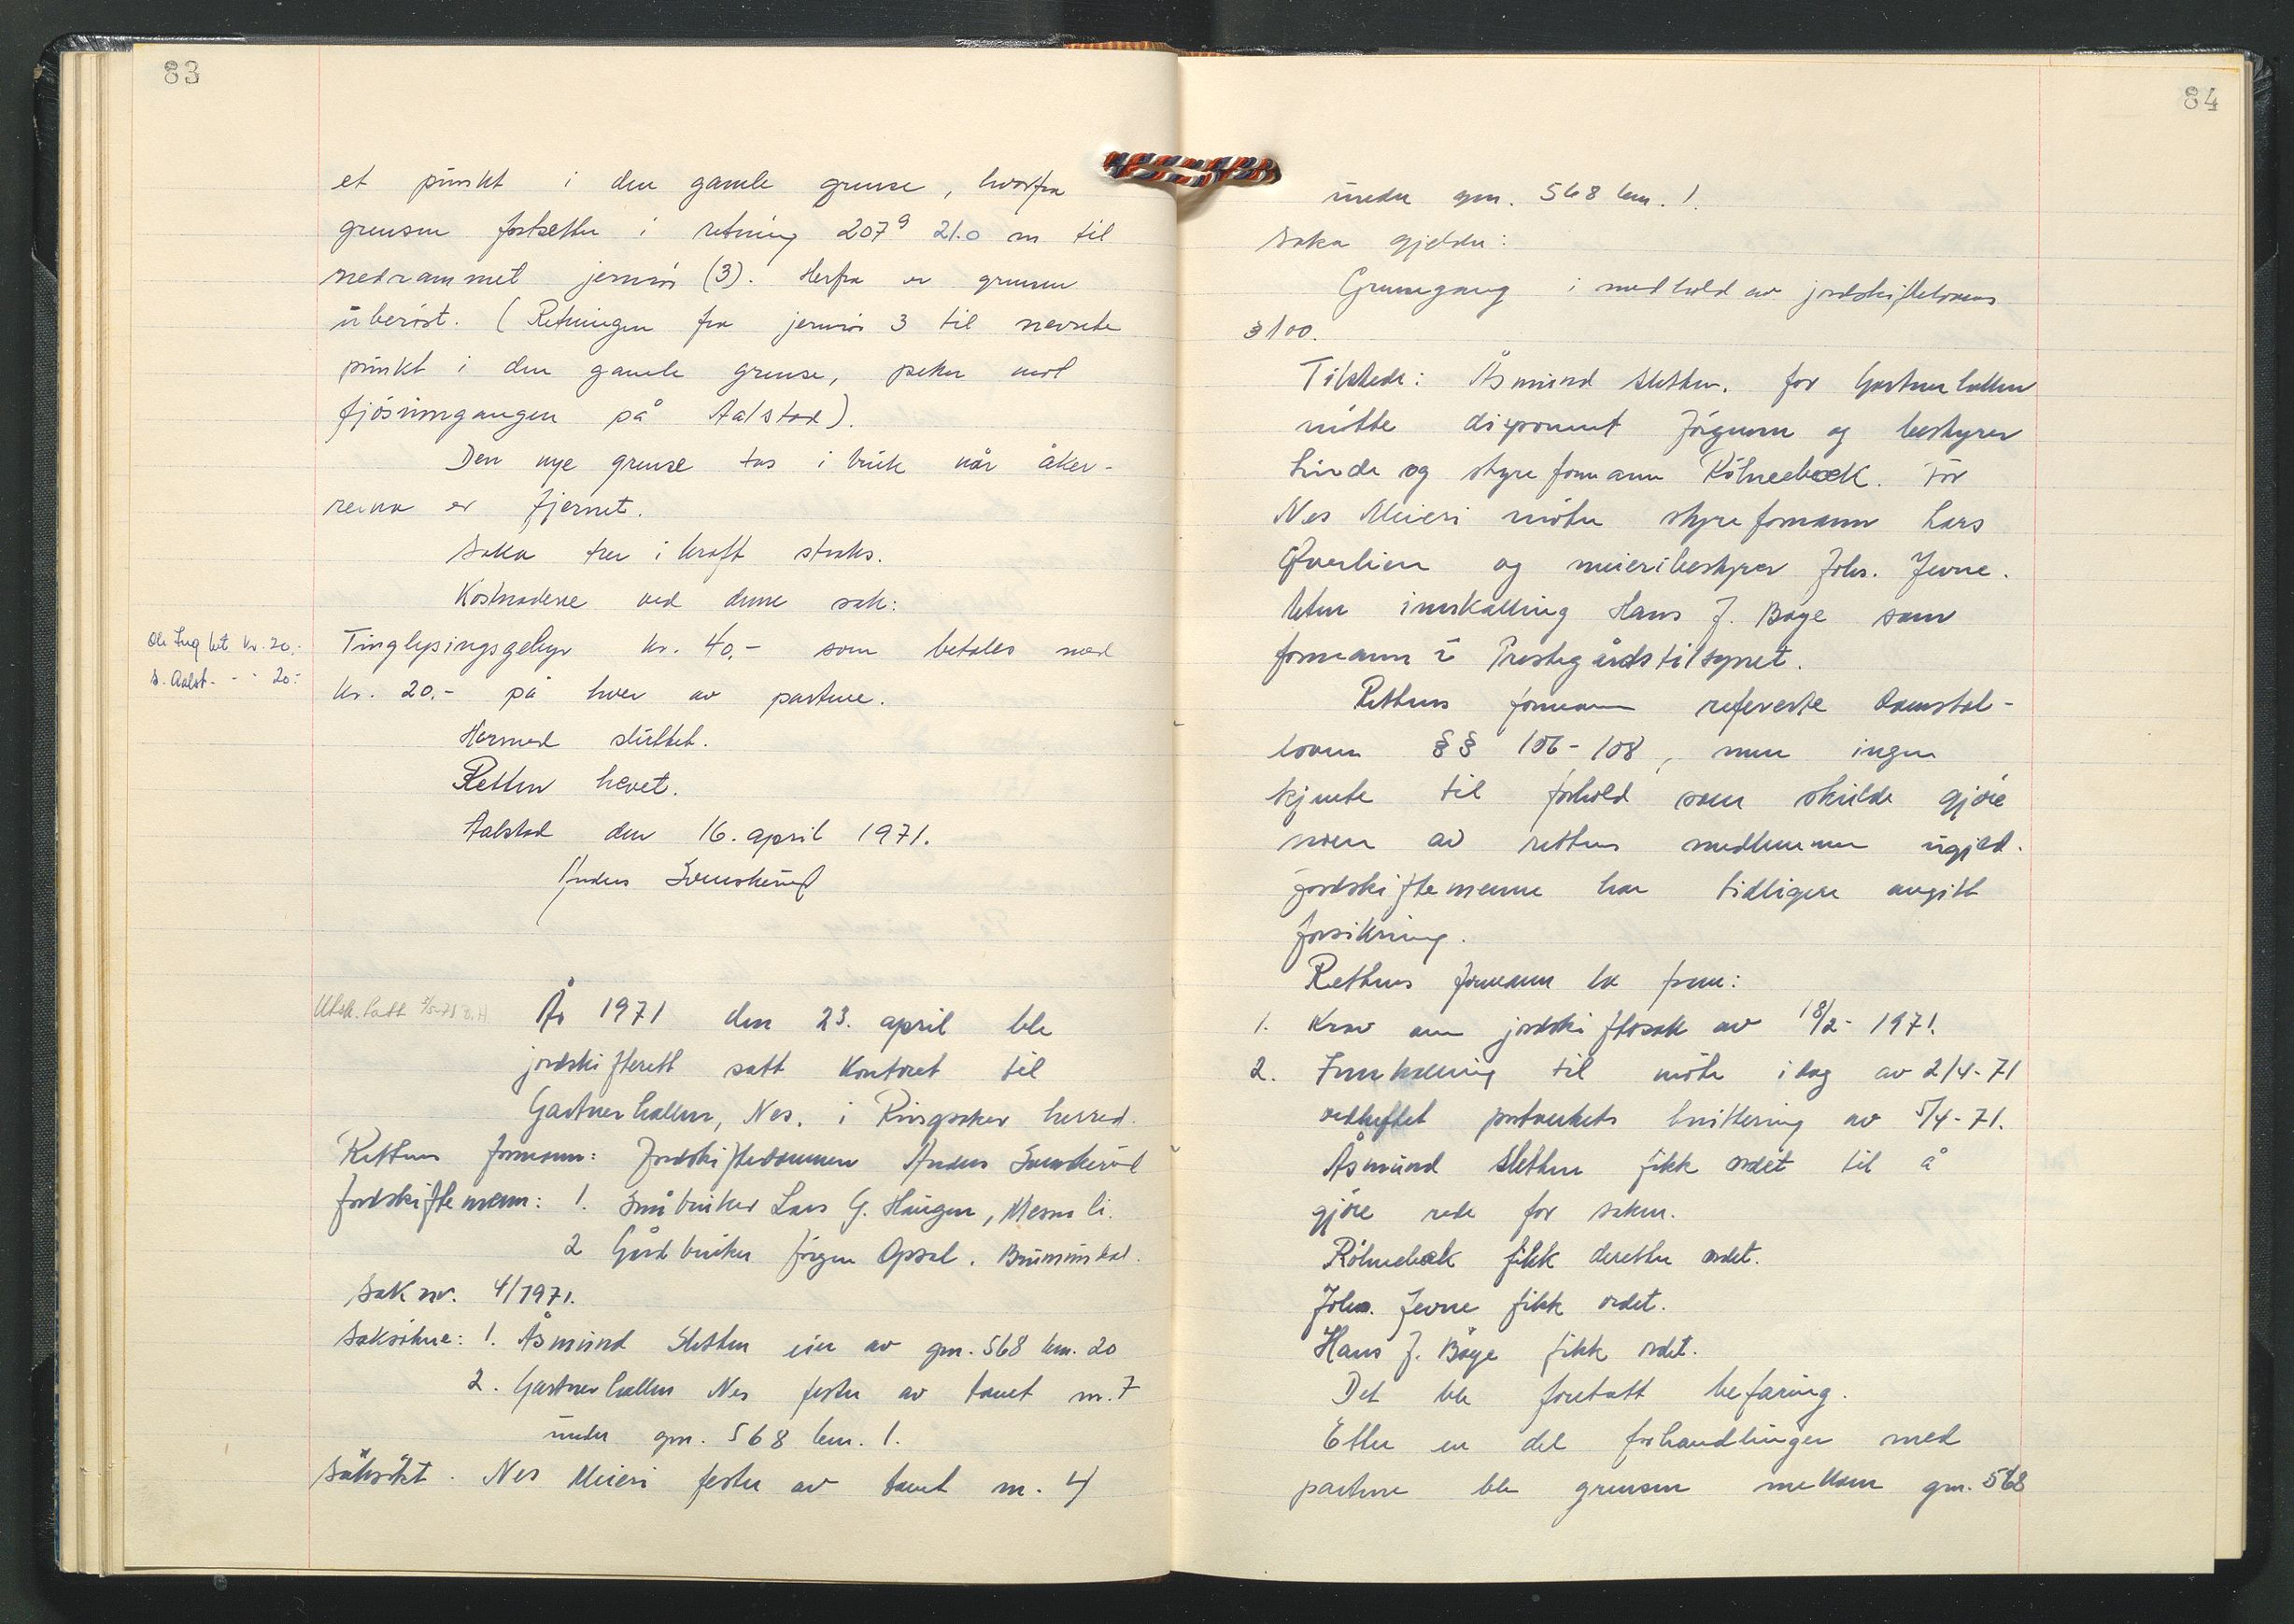 83
et punkt i den gamle grense, hvorfra
grensen fortsetter i retning 207g 21.0 m til
nedrammet jernrör (3). Herfra er grensen
uberört. (Retningen fra jernrör 3 til nevnte
punkt i den gamle grense, peker mot
fjösinngangen på Aalstad).
Den nye grense tas i bruk når åker-
reina er fjernet.
Saka trer i kraft straks.
Kostnadene ved denne sak:
Ole Ing bet kr. 20.-
S. Aalst. - - 20.-
Tinglysingsgebyr kr. 40.- som betales med
kr. 20.- på hver av partene.
Hermed sluttet.
Retten hevet.
Aalstad den 16. april 1971.
Anders Svenskerud
Utsk. tatt
År 1971 den 23. april ble
jordskifterett satt Kontoret til
Gartnerhallen, Nes, i Ringsaker herred.
Rettens formann: Jordskiftedommer Anders Svenskerud
Jordskiftemenn: 1. Småbruker Lars G. Haugen, Mesnali.
2 Gårdbruker Jörgen Opsal. Brumunddal.
Sak nr. 4/1971.
Saksökere: 1. Åsmund Sletten eier av gnr. 568 bnr. 20
2. Gartnerhallen Nes fester av tomt nr. 7
under gnr. 568 bnr. 1.
Saksökt. Nes Meieri fester av tomt nr. 4
84
under gnr. 568 bnr. 1.
Saka gjelder:
Grensegang i medhold av jordskiftelovens
§ 100.
Tilstede: Åsmund Sletten. for Gartnerhallen
mötte disponent og bestyrer
Linde og styreformann Kölnebæk. For
Nes Meieri möter styreformann Lars
Överlien og meieribestyrer Johs. Jevne.
Uten innkalling Hans J. Böye som
formann i Prestegårdstilsynet.
Rettens formann refererte Domstol-
loven §§ 106-108, men ingen
kjente til forhold som skulde gjöre
noen av rettens medlemmer ugild.
Jordskiftemenne har tidligere avgitt
forsikring.
Rettens formann la frem:
1. Krav om jordskiftesak av 18/2- 1971.
2. Innkalling til möte idag av 2/4-71
vedheftet postverkets kvittering av 5/4-71.
Åsmund Sletten fikk ordet til å
gjöre rede for saken.
Kölnebæk fikk deretter ordet.
Johs. Jevne fikk ordet.
Hans J. Böye fikk ordet.
Det ble foretatt befaring.
Etter en del forhandlinger med
partene ble grensen mellom gnr. 568